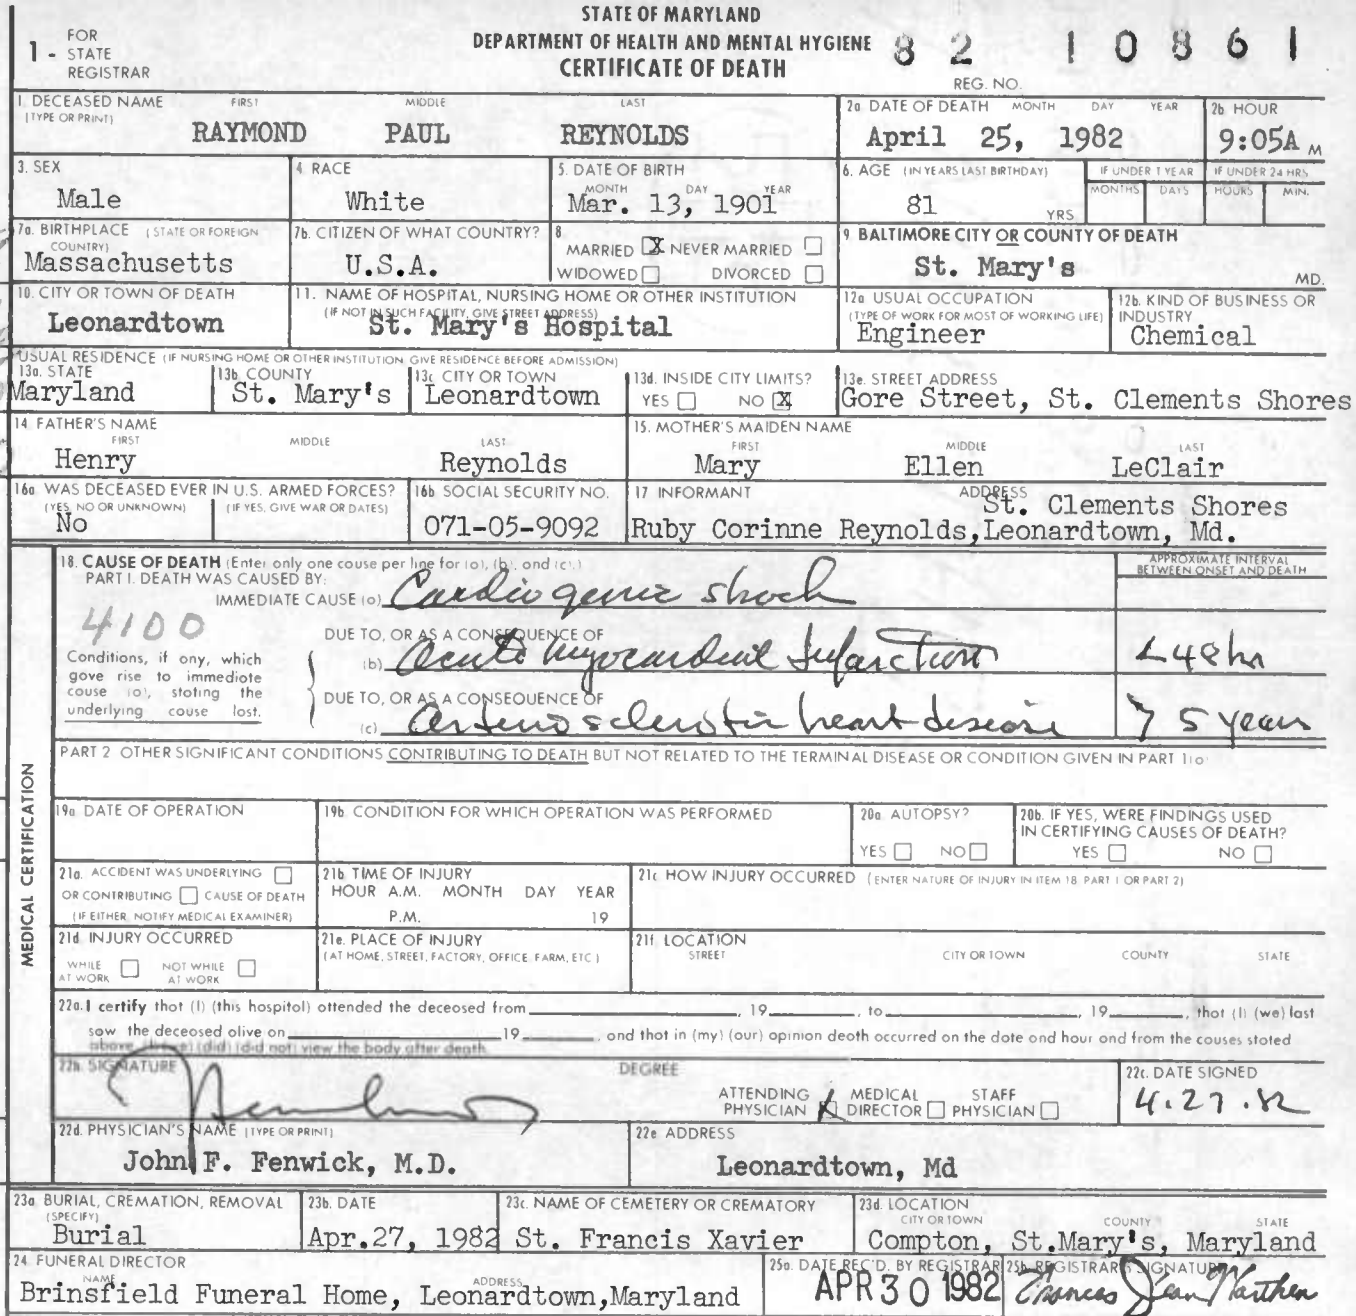 STATE OF MARYLAND
DEPARTMENT OF HEALTH AND MENTAL HYGIENE
CERTIFICATE OF DEATH
1 - FOR STATE REGISTRAR
82 10861
REG. NO.
1. DECEASED NAME (TYPE OR PRINT) FIRST MIDDLE LAST
RAYMOND PAUL REYNOLDS
2a. DATE OF DEATH MONTH DAY YEAR
April 25, 1982
2b. HOUR
9:05A M
3. SEX
Male
4. RACE
White
5. DATE OF BIRTH
MONTH DAY YEAR
Mar. 13, 1901
6. AGE (IN YEARS LAST BIRTHDAY)
81 YRS.
IF UNDER 1 YEAR
MONTHS DAYS
IF UNDER 24 HRS
HOURS MIN.
7a. BIRTHPLACE (STATE OR FOREIGN COUNTRY)
Massachusetts
7b. CITIZEN OF WHAT COUNTRY?
U.S.A.
8. MARRIED X NEVER MARRIED
WIDOWED DIVORCED
9. BALTIMORE CITY OR COUNTY OF DEATH
St. Mary's MD.
10. CITY OR TOWN OF DEATH
Leonardtown
11. NAME OF HOSPITAL, NURSING HOME OR OTHER INSTITUTION
(IF NOT IN SUCH FACILITY, GIVE STREET ADDRESS)
St. Mary's Hospital
12a. USUAL OCCUPATION
(TYPE OF WORK FOR MOST OF WORKING LIFE)
Engineer
12b. KIND OF BUSINESS OR INDUSTRY
Chemical
USUAL RESIDENCE (IF NURSING HOME OR OTHER INSTITUTION GIVE RESIDENCE BEFORE ADMISSION)
13a. STATE
Maryland
13b. COUNTY
St. Mary's
13c. CITY OR TOWN
Leonardtown
13d. INSIDE CITY LIMITS?
YES NO X
13e. STREET ADDRESS
Gore Street, St. Clements Shores
14. FATHER'S NAME
FIRST MIDDLE LAST
Henry Reynolds
15. MOTHER'S MAIDEN NAME
FIRST MIDDLE LAST
Mary Ellen LeClair
16a. WAS DECEASED EVER IN U.S. ARMED FORCES?
(YES, NO OR UNKNOWN) (IF YES, GIVE WAR OR DATES)
No
16b. SOCIAL SECURITY NO.
071-05-9092
17 INFORMANT ADDRESS
St. Clements Shores
Ruby Corinne Reynolds, Leonardtown, Md.
MEDICAL CERTIFICATION
18. CAUSE OF DEATH (Enter only one cause per line for (a), (b), and (c).)
APPROXIMATE INTERVAL BETWEEN ONSET AND DEATH
PART I. DEATH WAS CAUSED BY:
IMMEDIATE CAUSE (a) Cardiogenic shock
4100
Conditions, if any, which gave rise to immediate cause (a), stating the underlying cause last.
DUE TO, OR AS A CONSEQUENCE OF
(b) Acute Myocardial Infarction <48hr
DUE TO, OR AS A CONSEQUENCE OF
(c) Arteriosclerotic heart disease >5 years
PART 2 OTHER SIGNIFICANT CONDITIONS CONTRIBUTING TO DEATH BUT NOT RELATED TO THE TERMINAL DISEASE OR CONDITION GIVEN IN PART 1(a)
19a. DATE OF OPERATION
19b. CONDITION FOR WHICH OPERATION WAS PERFORMED
20a. AUTOPSY?
YES NO
20b. IF YES, WERE FINDINGS USED IN CERTIFYING CAUSES OF DEATH?
YES NO
21a. ACCIDENT WAS UNDERLYING
OR CONTRIBUTING CAUSE OF DEATH
(IF EITHER, NOTIFY MEDICAL EXAMINER)
21b. TIME OF INJURY
HOUR A.M. MONTH DAY YEAR
P.M. 19
21c. HOW INJURY OCCURRED (ENTER NATURE OF INJURY IN ITEM 18 PART 1 OR PART 2)
21d. INJURY OCCURRED
WHILE AT WORK NOT WHILE AT WORK
21e. PLACE OF INJURY
(AT HOME, STREET, FACTORY, OFFICE, FARM, ETC.)
21f. LOCATION
STREET CITY OR TOWN COUNTY STATE
22a. I certify that (I) (this hospital) attended the deceased from , 19 , to , 19 , that (I) (we) last
saw the deceased alive on 19 , and that in (my) (our) opinion death occurred on the date and hour and from the causes stated
above. (I) (we) (did) (did not) view the body after death.
22b. SIGNATURE DEGREE
ATTENDING PHYSICIAN X MEDICAL DIRECTOR STAFF PHYSICIAN
22c. DATE SIGNED
4.27.82
22d. PHYSICIAN'S NAME (TYPE OR PRINT)
John F. Fenwick, M.D.
22e. ADDRESS
Leonardtown, Md
23a. BURIAL, CREMATION, REMOVAL (SPECIFY)
Burial
23b. DATE
Apr.27, 1982
23c. NAME OF CEMETERY OR CREMATORY
St. Francis Xavier
23d. LOCATION
CITY OR TOWN COUNTY STATE
Compton, St.Mary's, Maryland
24. FUNERAL DIRECTOR
NAME ADDRESS
Brinsfield Funeral Home, Leonardtown, Maryland
25a. DATE REC'D. BY REGISTRAR
APR 30 1982
25b. REGISTRAR'S SIGNATURE
Frances Jean Warthen